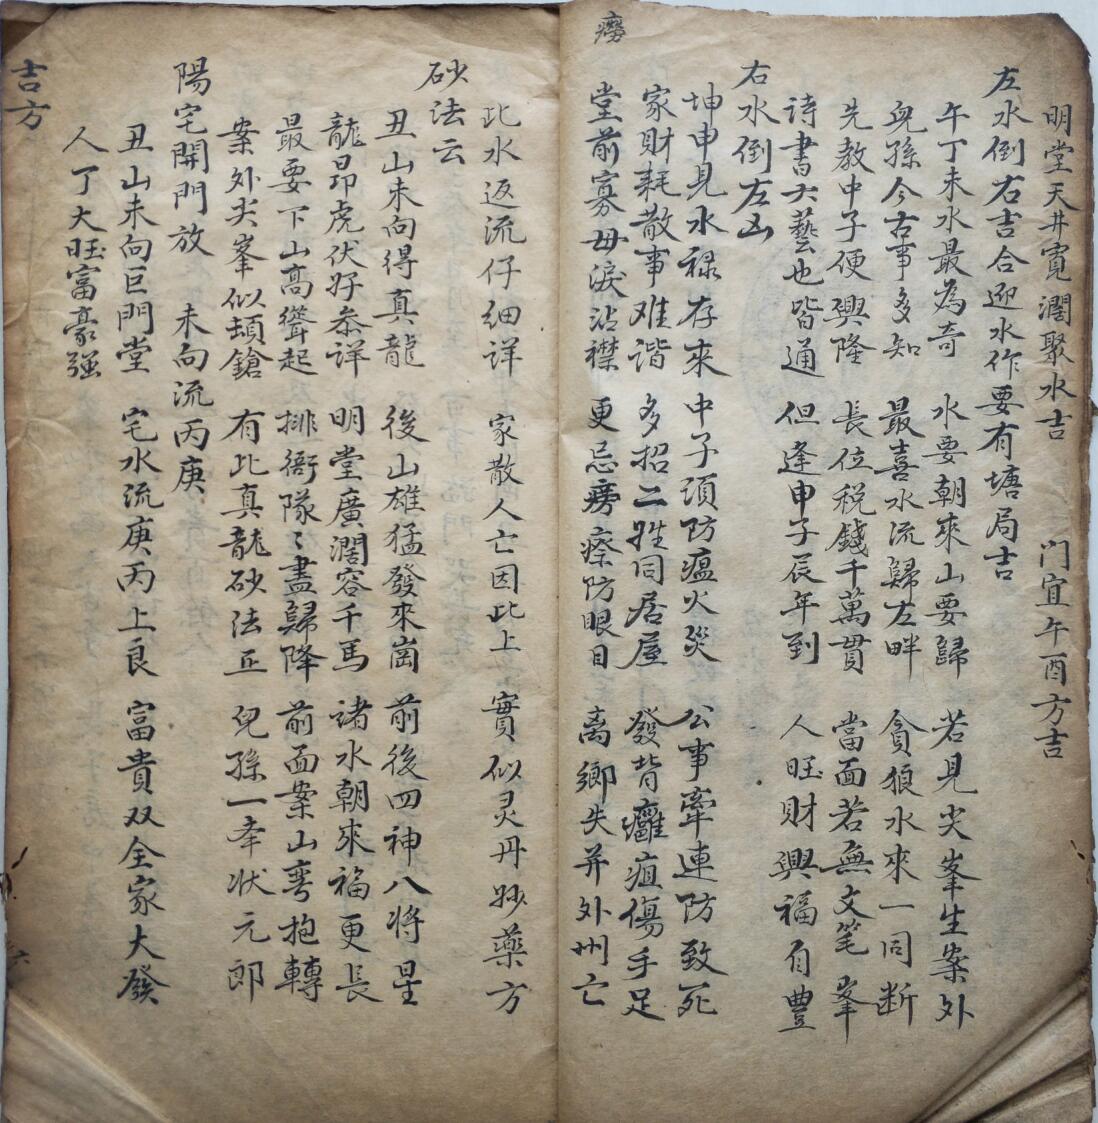 明堂天井寬濶聚水吉 门宜午酉方吉
左水倒右吉合迎水作要有塘局吉
午丁未水最為奇 水要朝來山要歸 若見尖峯生案外
兒孫今古事多知 最喜水流歸左畔 貪狼水來一同断
先教中子便興隆 長位税錢千萬貫 當面若無文笔峯
诗書六藝也皆通 但逢申子辰年到 人旺財興福自豊
右水倒左凶
坤申見水禄存來 中子須防瘟火災 公事牽連防致死
家財耗散事难谐 多招二姓同居屋 發背癰疽傷手足
堂前寡母淚沾襟 更忌痨瘵防眼目 离鄉失井外州亡
癆
此水返流仔细詳 家散人亡因此上 實似灵丹妙藥方
砂法云
丑山未向得真龍 後山雄猛發來崗 前後四神八将星
龍昂虎伏好叅详 明堂廣濶容千馬 諸水朝來福更長
最要下山高聳起 排衙隊〻盡歸降 前面案山弯抱轉
案外尖峯似頓鎗 有此真龍砂法正 兒孫一牽状元郎
陽宅開門放 未向流丙庚
丑山未向巨門堂 宅水流庚丙上良 富貴双全家大發
人丁大旺富豪强
吉方